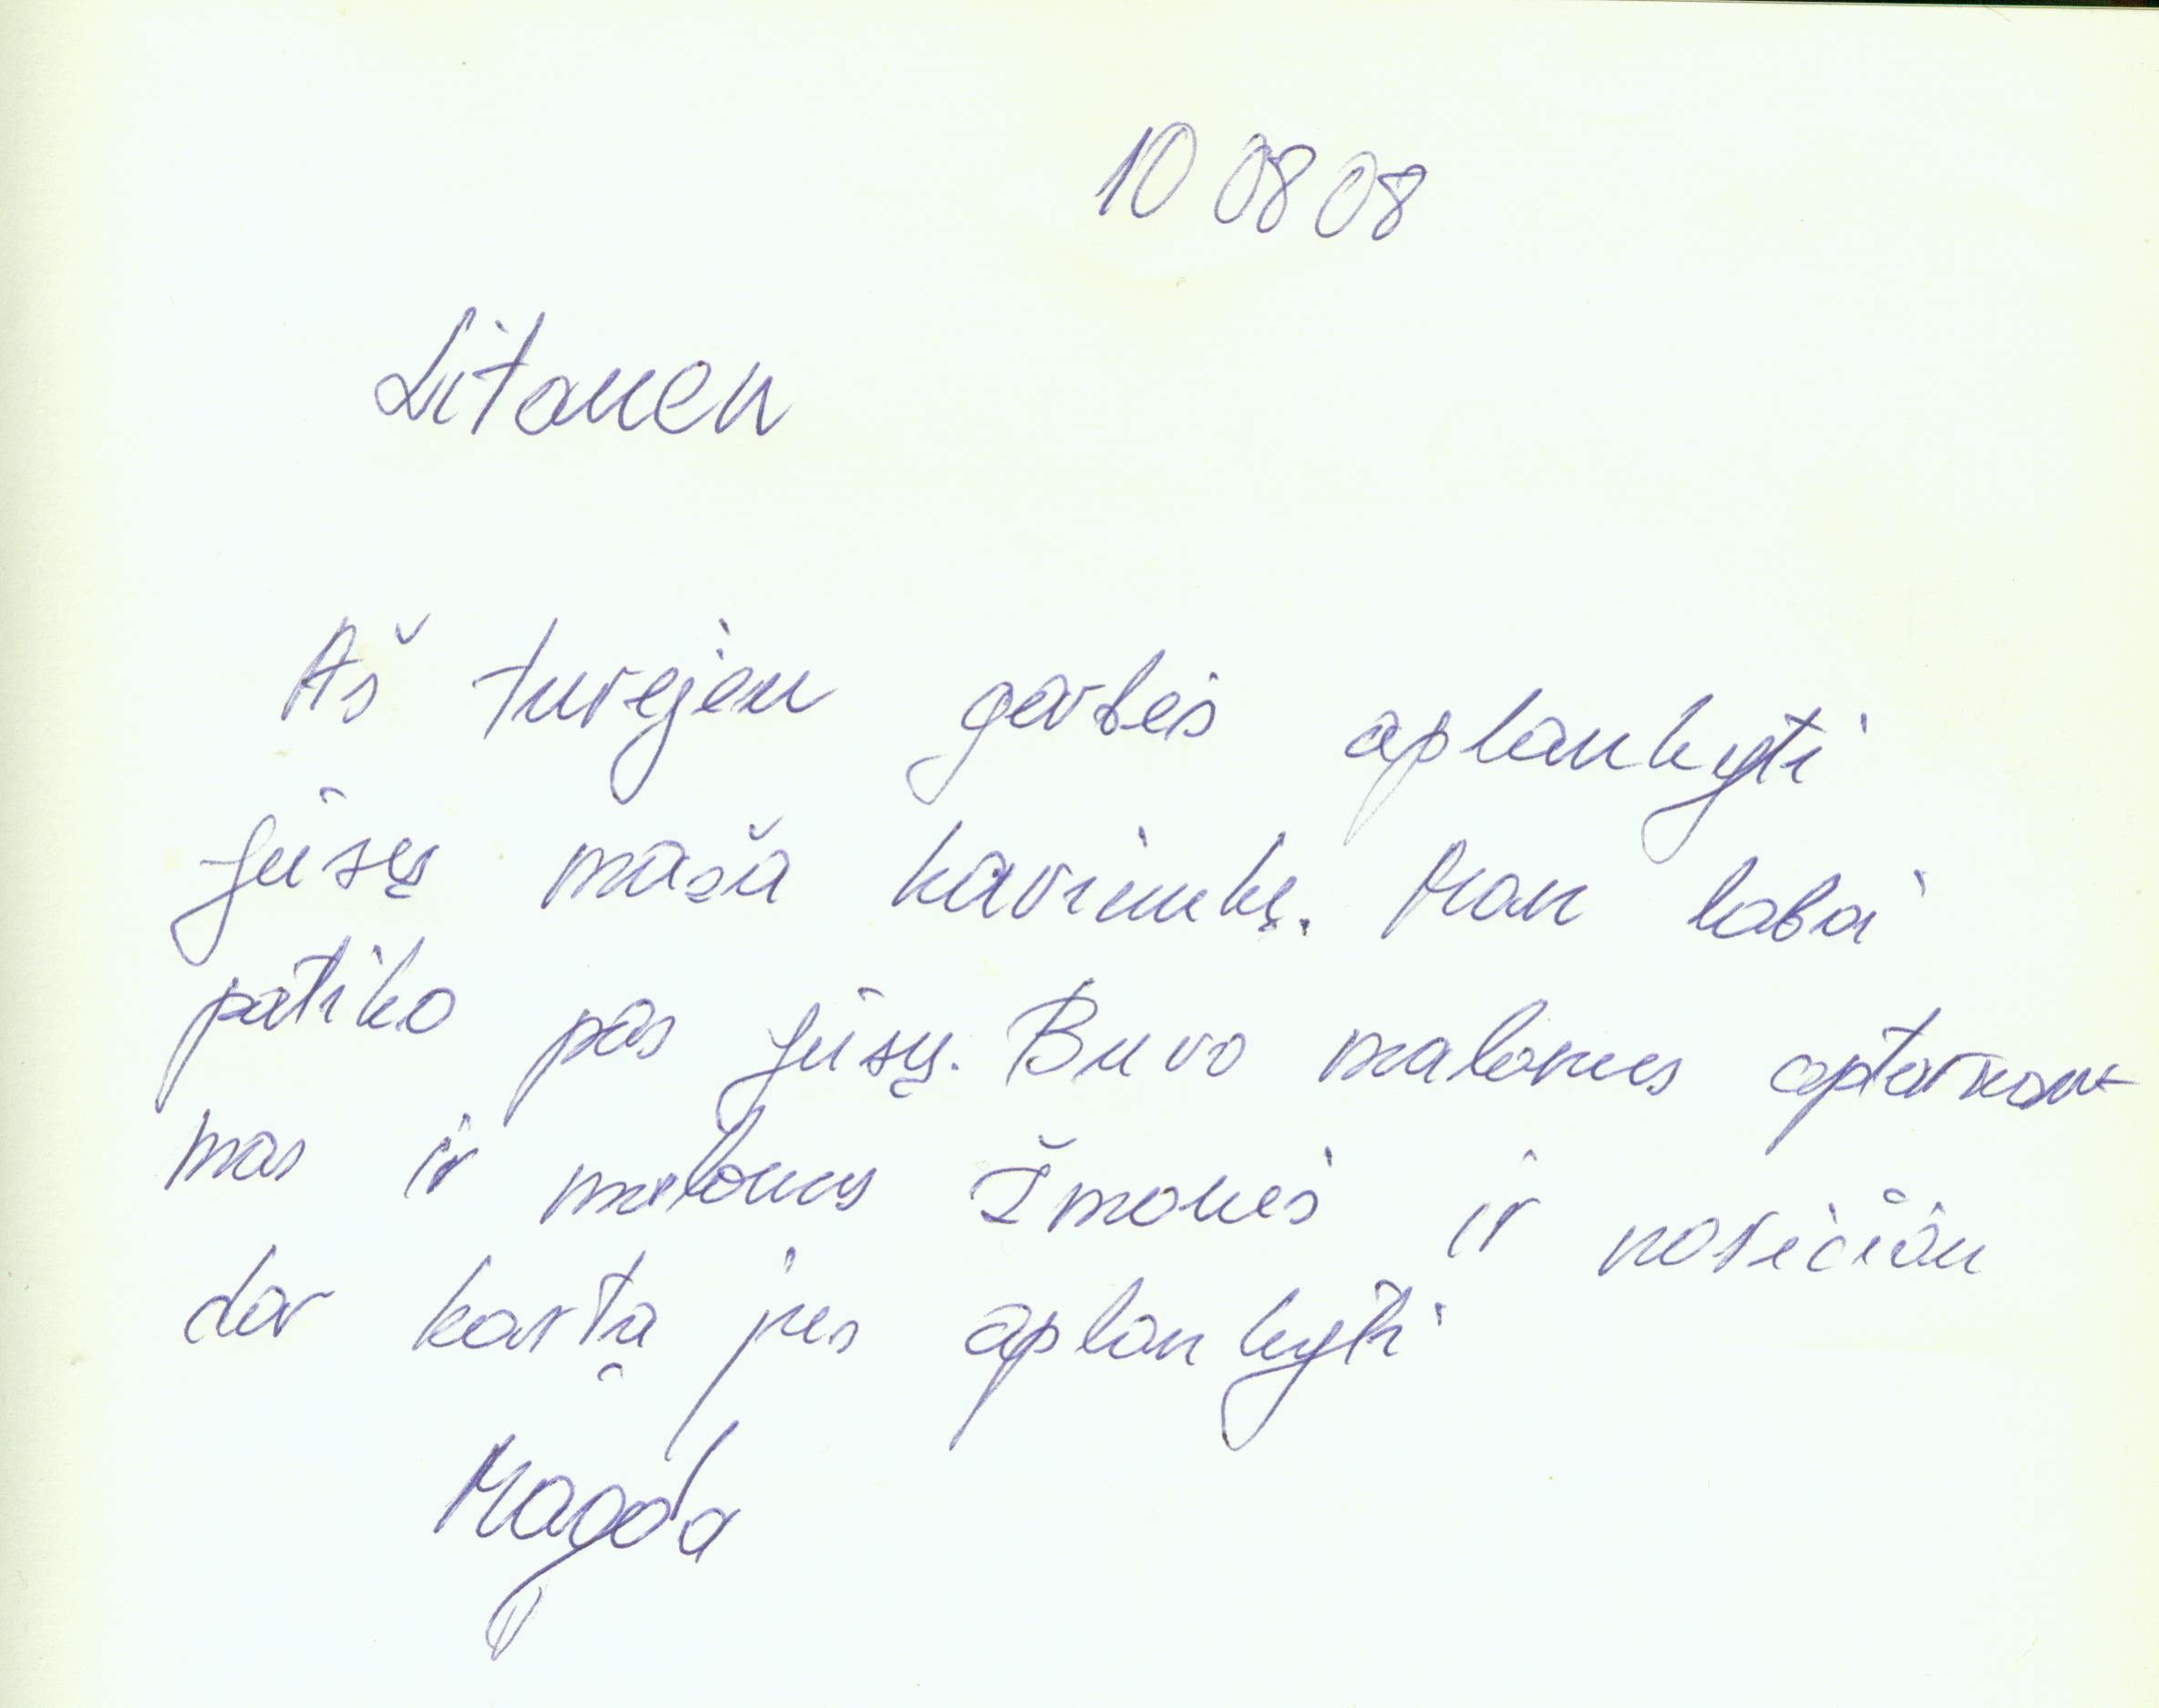 10 08 08
Litauen
Aš turejeu garbės aplankyti
Jūsų maža kavinukę. Man labai
patiko pas Jūsų. Buvo malonus aptarnau-
mas ir malonus žmonės ir noričiau
dar kartą jus aplankyti
Magda